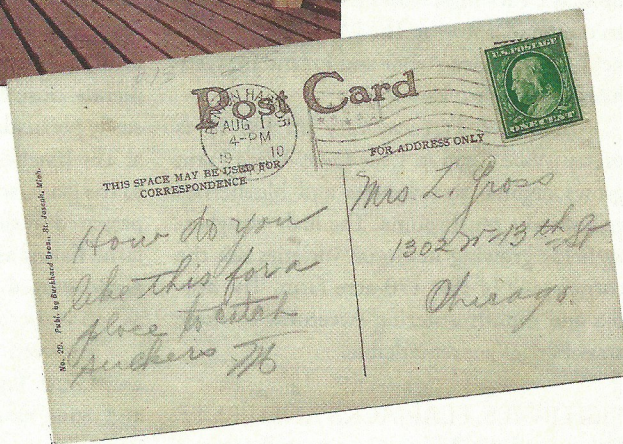 Post Card
BENTON HARBOR
AUG 1
4-PM
1910
U.S. POSTAGE
ONE CENT
THIS SPACE MAY BE USED FOR
CORRESPONDENCE
FOR ADDRESS ONLY
No. 20. Publ. by Burkhard Bros., St. Joseph, Mich.
How do you
like this for a
place to catch
suckers M
Mrs. L. Gross
1302 W-13th St
Chicago.